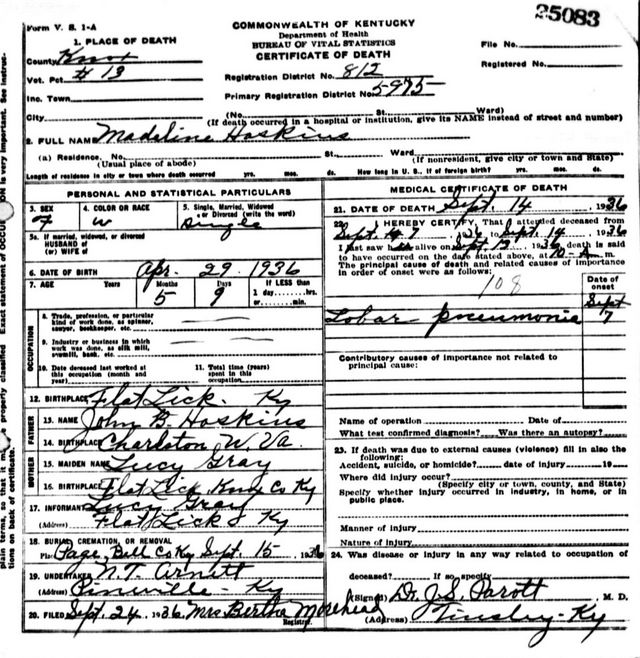 25083
Form V. S. 1-A
COMMONWEALTH OF KENTUCKY
Department of Health
BUREAU OF VITAL STATISTICS
CERTIFICATE OF DEATH
File No.
Registered No.
1. PLACE OF DEATH
County Knox
Vot. Pct # 13
Inc. Town
City
Registration District No. 812
Primary Registration District No. 5975
(No. St., Ward)
(If death occurred in a hospital or institution, give its NAME instead of street and number)
2. FULL NAME Madeline Hoskins
(a) Residence. No. St., Ward
(Usual place of abode) (If nonresident, give city or town and State)
Length of residence in city or town where death occurred yrs. mos. ds. How long in U. S., if of foreign birth? yrs. mos. ds.
PERSONAL AND STATISTICAL PARTICULARS
3. SEX F
4. COLOR OR RACE W
5. Single, Married, Widowed or Divorced (write the word) Single
5a. If married, widowed, or divorced
HUSBAND of
(or) WIFE of
6. DATE OF BIRTH Apr. 29. 1936
7. AGE Years Months 5 Days 9 If LESS than 1 day......hrs. or......min.
OCCUPATION
8. Trade, profession, or particular kind of work done, as spinner, sawyer, bookkeeper, etc.
9. Industry or business in which work was done, as silk mill, sawmill, bank, etc.
10. Date deceased last worked at this occupation (month and year)
11. Total time (years) spent in this occupation
12. BIRTHPLACE Flat Lick. Ky
FATHER
13. NAME John B. Hoskins
14. BIRTHPLACE Charlston W. Va.
MOTHER
15. MAIDEN NAME Lucy Gray
16. BIRTHPLACE Flat Lick Knox Co Ky
17. INFORMANT Lucy Gray
(Address) Flat Lick Ky
18. BURIAL, CREMATION, OR REMOVAL
Place Page, Bell Co Ky Sept. 15 1936
19. UNDERTAKER N. T. Arnett
(Address) Pineville - Ky
20. FILED Sept. 24, 1936 Mrs Bertha Morehead
Registrar.
MEDICAL CERTIFICATE OF DEATH
21. DATE OF DEATH Sept. 14 1936
22. I HEREBY CERTIFY, That I attended deceased from
Sept. 7, 1936 to Sept. 14, 1936
I last saw h alive on Sept. 13, 1936 death is said
to have occurred on the date stated above, at 10-A m.
The principal cause of death and related causes of importance
in order of onset were as follows:
Date of onset
108
Lobar pneumonia Sept 7
Contributory causes of importance not related to
principal cause:
Name of operation Date of
What test confirmed diagnosis? Was there an autopsy?
23. If death was due to external causes (violence) fill in also the
following:
Accident, suicide, or homicide? date of injury 19
Where did injury occur?
(Specify city or town, county, and State)
Specify whether injury occurred in industry, in home, or in
public place.
Manner of injury
Nature of injury
24. Was disease or injury in any way related to occupation of
deceased? If so, specify
(Signed) Dr. J. S. Parott M. D.
(Address) Tinsley - Ky